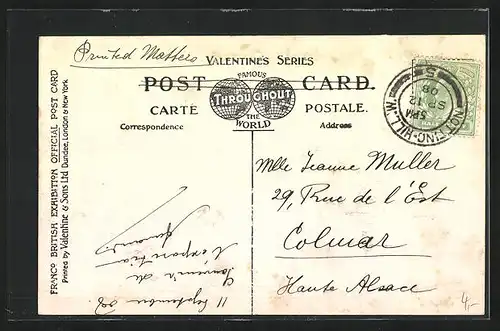 Printed Matters
VALENTINE'S SERIES
POST CARD.
FAMOUS
THROUGHOUT
THE
WORLD
CARTE POSTALE.
Correspondence
Address
FRANCO BRITISH EXHIBITION OFFICIAL POST CARD
Printed by Valentine & Sons Ltd Dundee, London & New York.
NOTTING-HILL.W.
5 PM
SP 12
08
S
Mlle Jeanne Muller
29, Rue de l'Est
Colmar
Haute Alsace
11 September 08
Souvenir de
l'exposition
4,-